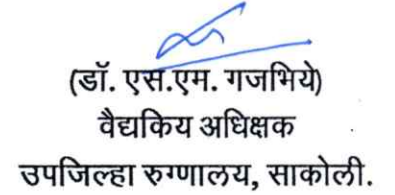 (डॉ. एस.एम. गजभिये)
वैद्यकिय अधिक्षक
उपजिल्हा रुग्णालय, साकोली.